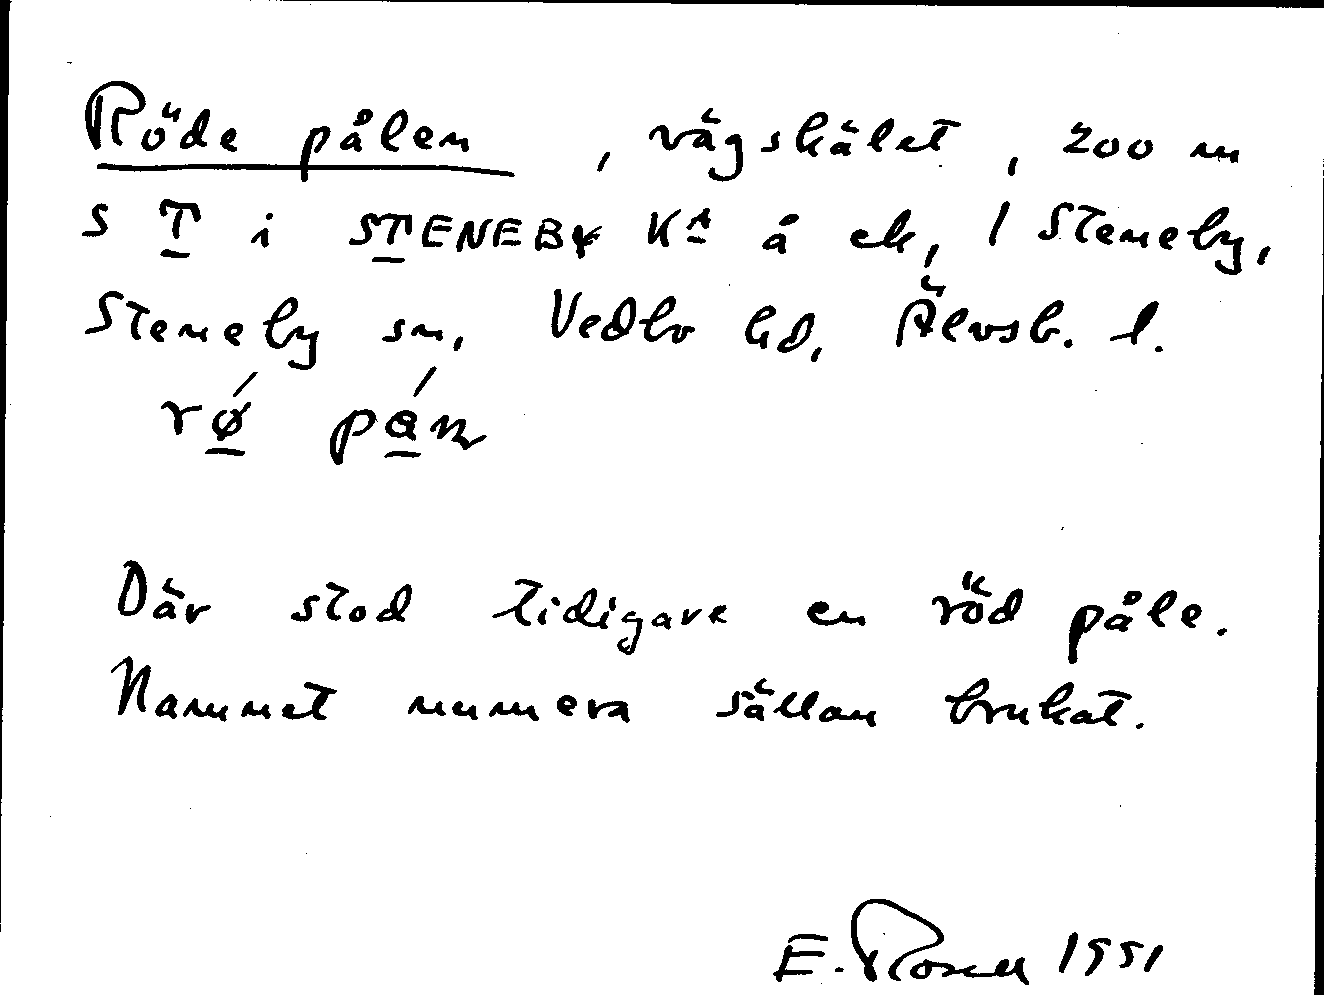 Röde pålen, vägskälet, 200 m
s T i STENEBY Ka å ek, 1 Steneby,
Steneby sn, Vedbo hd, Älvsb. l.
rǿ pá̱n
Där stod tidigare en röd påle.
Namnet numera sällan brukat.
E. Rosell 1951